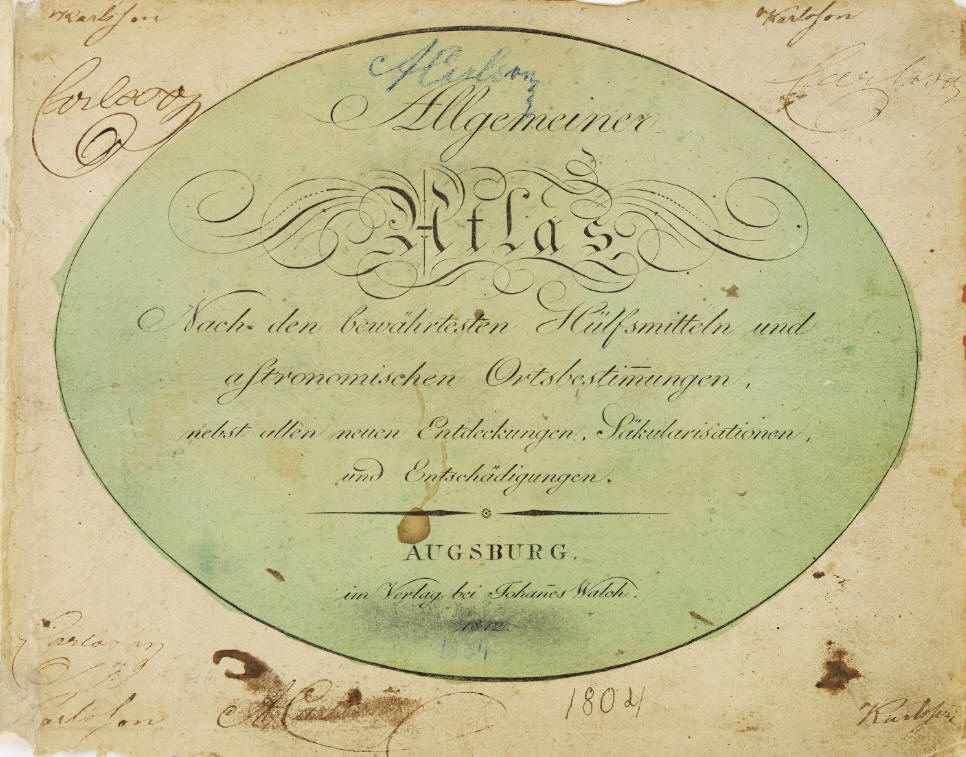 Karlsson
Karlsson
Carlsson
Carlsson
A Carlson
Allgemeiner
Atlas
Nach den bewährtesten Hülfsmitteln und
aſtronomischen Ortsbestim̅ungen,
nebst allen neuen Entdeckungen, Säkularisationen,
und Entschädigungen.
AUGSBURG.
im Verlag bei Johan̅es Walch.
1812.
Karlsson
1802
Karlsson